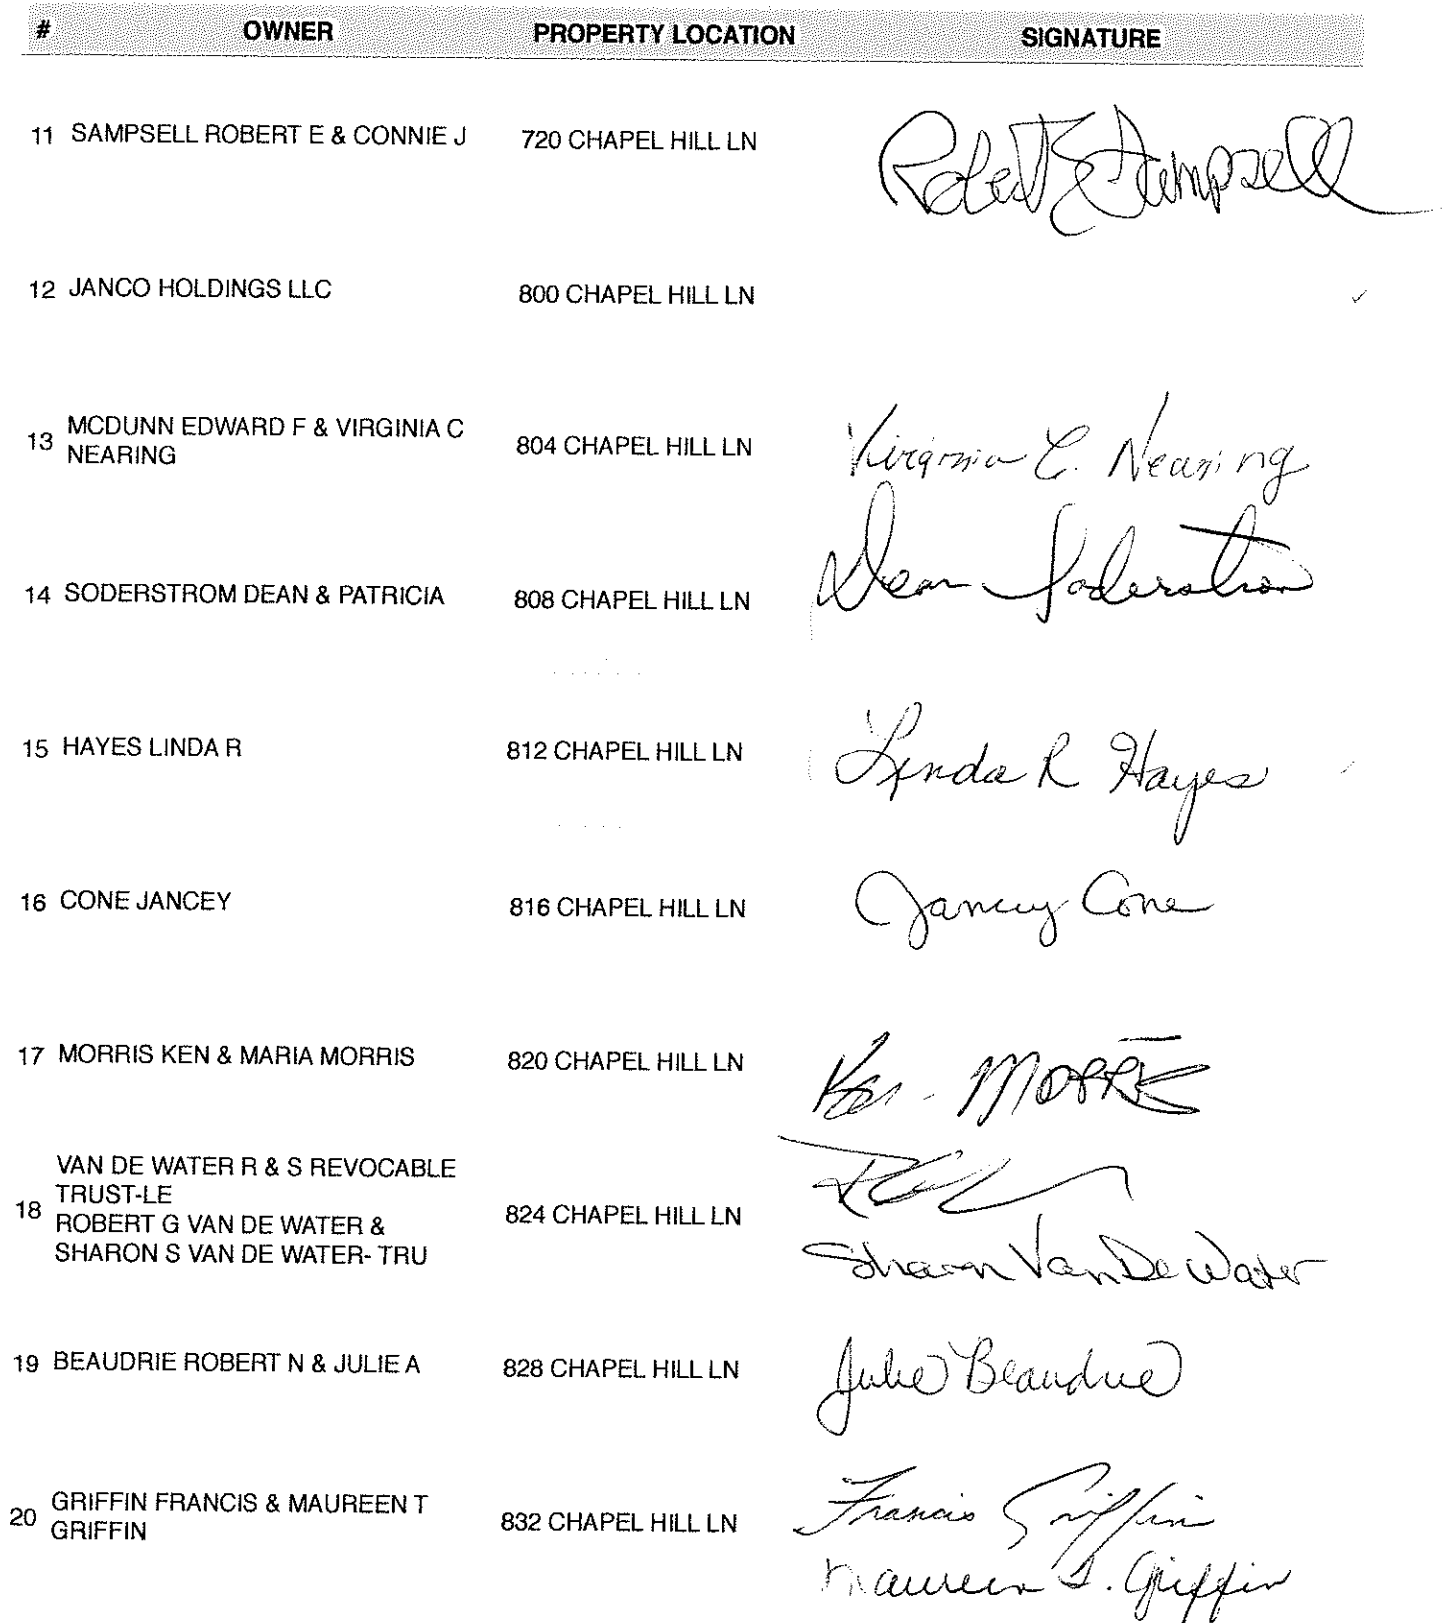 # OWNER PROPERTY LOCATION SIGNATURE
11 SAMPSELL ROBERT E & CONNIE J 720 CHAPEL HILL LN Robert E Sampsell
12 JANCO HOLDINGS LLC 800 CHAPEL HILL LN ✓
13 MCDUNN EDWARD F & VIRGINIA C NEARING 804 CHAPEL HILL LN Virginia C. Nearing
14 SODERSTROM DEAN & PATRICIA 808 CHAPEL HILL LN Dean Soderstrom
15 HAYES LINDA R 812 CHAPEL HILL LN Linda R Hayes
16 CONE JANCEY 816 CHAPEL HILL LN Jancey Cone
17 MORRIS KEN & MARIA MORRIS 820 CHAPEL HILL LN Ken Morris
VAN DE WATER R & S REVOCABLE
TRUST-LE
18 ROBERT G VAN DE WATER & 824 CHAPEL HILL LN
SHARON S VAN DE WATER- TRU Sharon Van De Water
19 BEAUDRIE ROBERT N & JULIE A 828 CHAPEL HILL LN Julie Beaudrie
20 GRIFFIN FRANCIS & MAUREEN T GRIFFIN 832 CHAPEL HILL LN Francis Griffin
Maureen T. Griffin